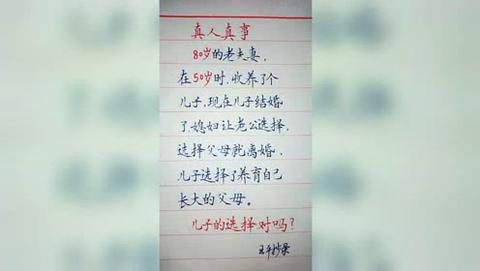 真人真事
80岁的老夫妻，
在50岁时，收养了个
儿子，现在儿子结婚
了，媳妇让老公选择，
选择父母就离婚，
儿子选择了养育自己
长大的父母。
儿子的选择对吗？